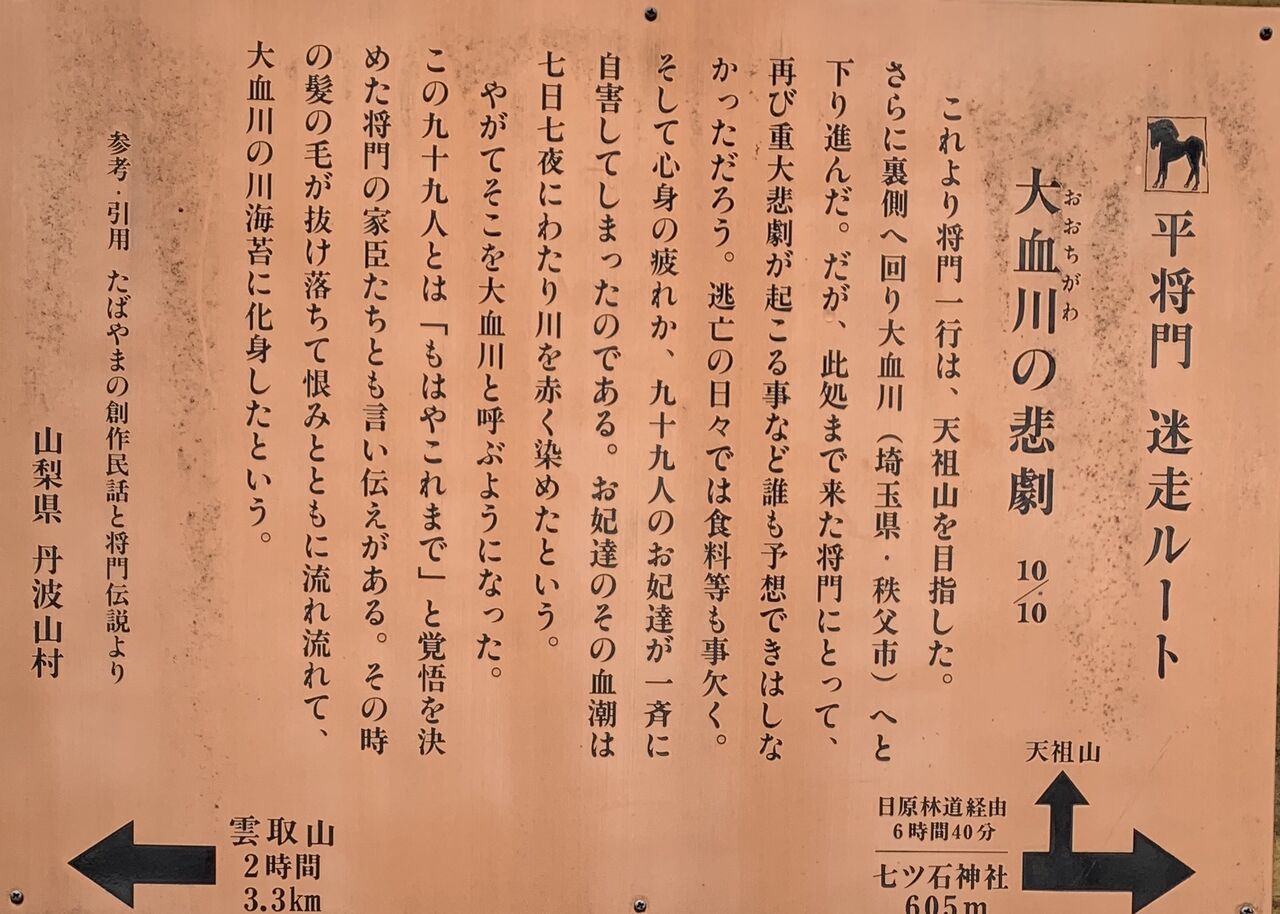 平将門 迷走ルート
おおちがわ
大血川の悲劇 10/10
これより将門一行は、天祖山を目指した。
さらに裏側へ回り大血川（埼玉県・秩父市）へと
下り進んだ。だが、此処まで来た将門にとって、
再び重大悲劇が起こる事など誰も予想できはしな
かっただろう。逃亡の日々では食料等も事欠く。
そして心身の疲れか、九十九人のお妃達が一斉に
自害してしまったのである。お妃達のその血潮は
七日七夜にわたり川を赤く染めたという。
やがてそこを大血川と呼ぶようになった。
この九十九人とは「もはやこれまで」と覚悟を決
めた将門の家臣たちとも言い伝えがある。その時
の髪の毛が抜け落ちて恨みとともに流れ流れて、
大血川の川海苔に化身したという。
参考・引用 たばやまの創作民話と将門伝説より
山梨県 丹波山村
天祖山
日原林道経由
6時間40分
七ツ石神社
605m
雲取山
2時間
3.3km